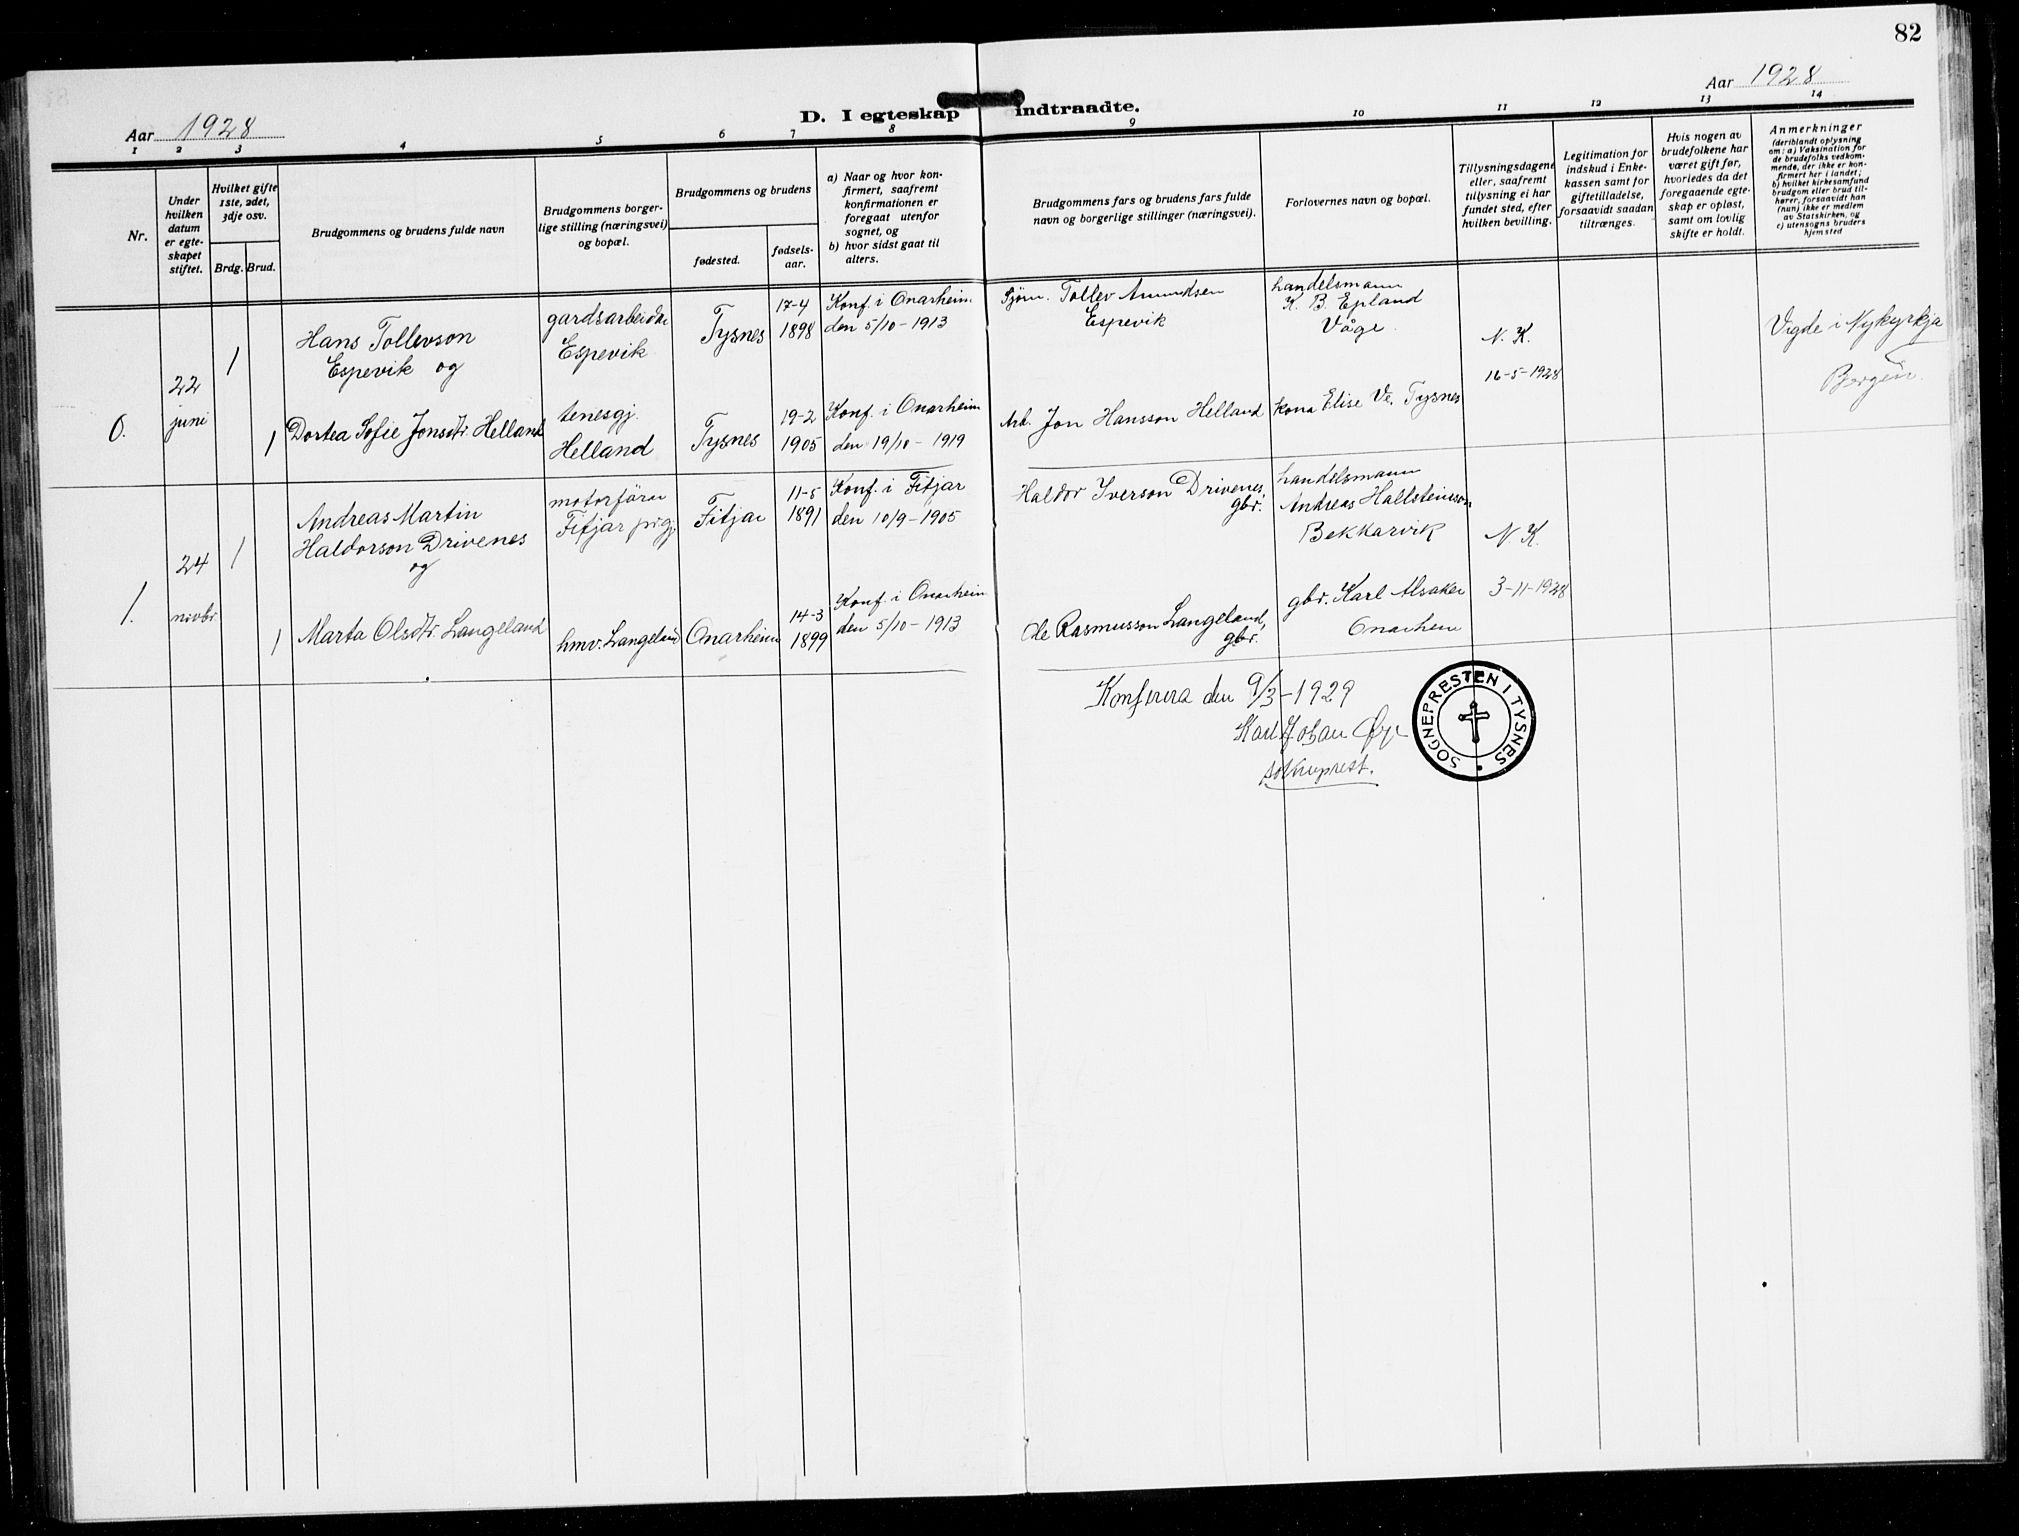 82
Aar 1928
Aar 1928
D. I egteskap indtraadte.
1 2 3 4 5 6 7 8 9 10 11 12 13 14
Nr.
Under
hvilken
datum
er egte-
skapet
stiftet.
Hvilket gifte
1ste, 2det,
3dje osv.
Brdg. Brud.
Brudgommens og brudens fulde navn
Brudgommens borger-
lige stilling (næringsvei)
og bopæl.
Brudgommens og brudens
fødested.
fødsels-
aar.
a) Naar og hvor kon-
firmert, saafremt
konfirmationen er
foregaat utenfor
sognet, og
b) hvor sidst gaat til
alters.
Brudgommens fars og brudens fars fulde
navn og borgerlige stillinger (næringsvei).
Forlovernes navn og bopæl.
Tillysningsdagene
eller, saafremt
tillysning ei har
fundet sted, efter
hvilken bevilling.
Legitimation for
indskud i Enke-
kassen samt for
giftetilladelse,
forsaavidt saadan
tiltrænges.
Hvis nogen av
brudefolkene har
været gift før,
hvorledes da det
foregaaende egte-
skap er opløst,
samt om lovlig
skifte er holdt.
Anmerkninger
(deriblandt oplysning
om: a) Vaksination for
de brudefolks vedkom-
mende, der ikke er kon-
firmert her i landet;
b) hvilket kirkesamfund
brudgom eller brud til-
hører, forsaavidt han
(hun) ikke er medlem
av Statskirken, og
c) utensogns bruders
hjemsted
0.
22
juni
1
Hans Tollevson
Espevik og
gardsarbeidar
Espevik
Tysnes
17-4
1898
Konf. i Onarheim
den 5/10-1913
Sjøm. Tollev Amundsen
Espevik
handelsmann
K. B. Epland
Våge.
N. K.
16-5-1928
Vigde i Nykyrkja
Bergen.
1
Dortea Sofie Jonsdtr. Helland
tenesgj.
Helland
Tysnes
19-2
1905
Konf. i Onarheim
den 19/10-1919
Arb. Jon Hansson Helland
kona Elise Ve. Tysnes
1.
24
novbr
1
Andreas Martin
Haldorson Drivenes
og
motorførar
Fitjar prgj.
Fitjar
11-5
1891
Konf. i Fitjar
den 10/9-1905
Haldor Iverson Drivenes,
gbr.
handelsmann
Andreas Hallsteinsson
Bekkarvik
N. K.
3-11-1928
1
Marta Olsdtr. Langeland
hmv. Langeland
Onarheim
14-3
1899
Konf. i Onarheim
den 5/10-1913
Ole Rasmusson Langeland,
gbr.
gbr. Karl Alsaker
Onarheim
Konferera den 9/3-1929
Karl Johan Øye
sokneprest.
SOGNEPRESTEN I TYSNES